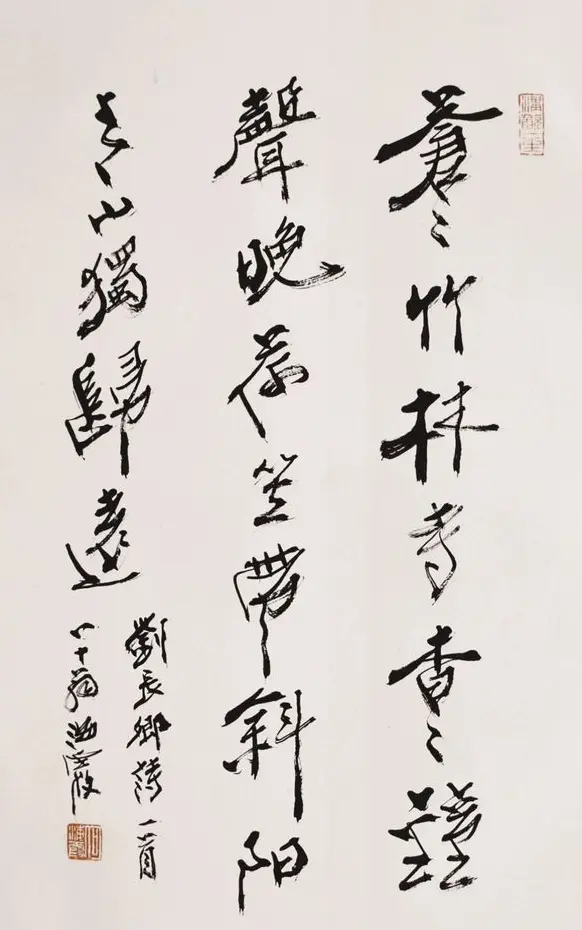 蒼〻竹林寺杳〻鐘
聲晚荷笠帶斜陽
青山獨歸遠
劉長卿詩一首
八十翁